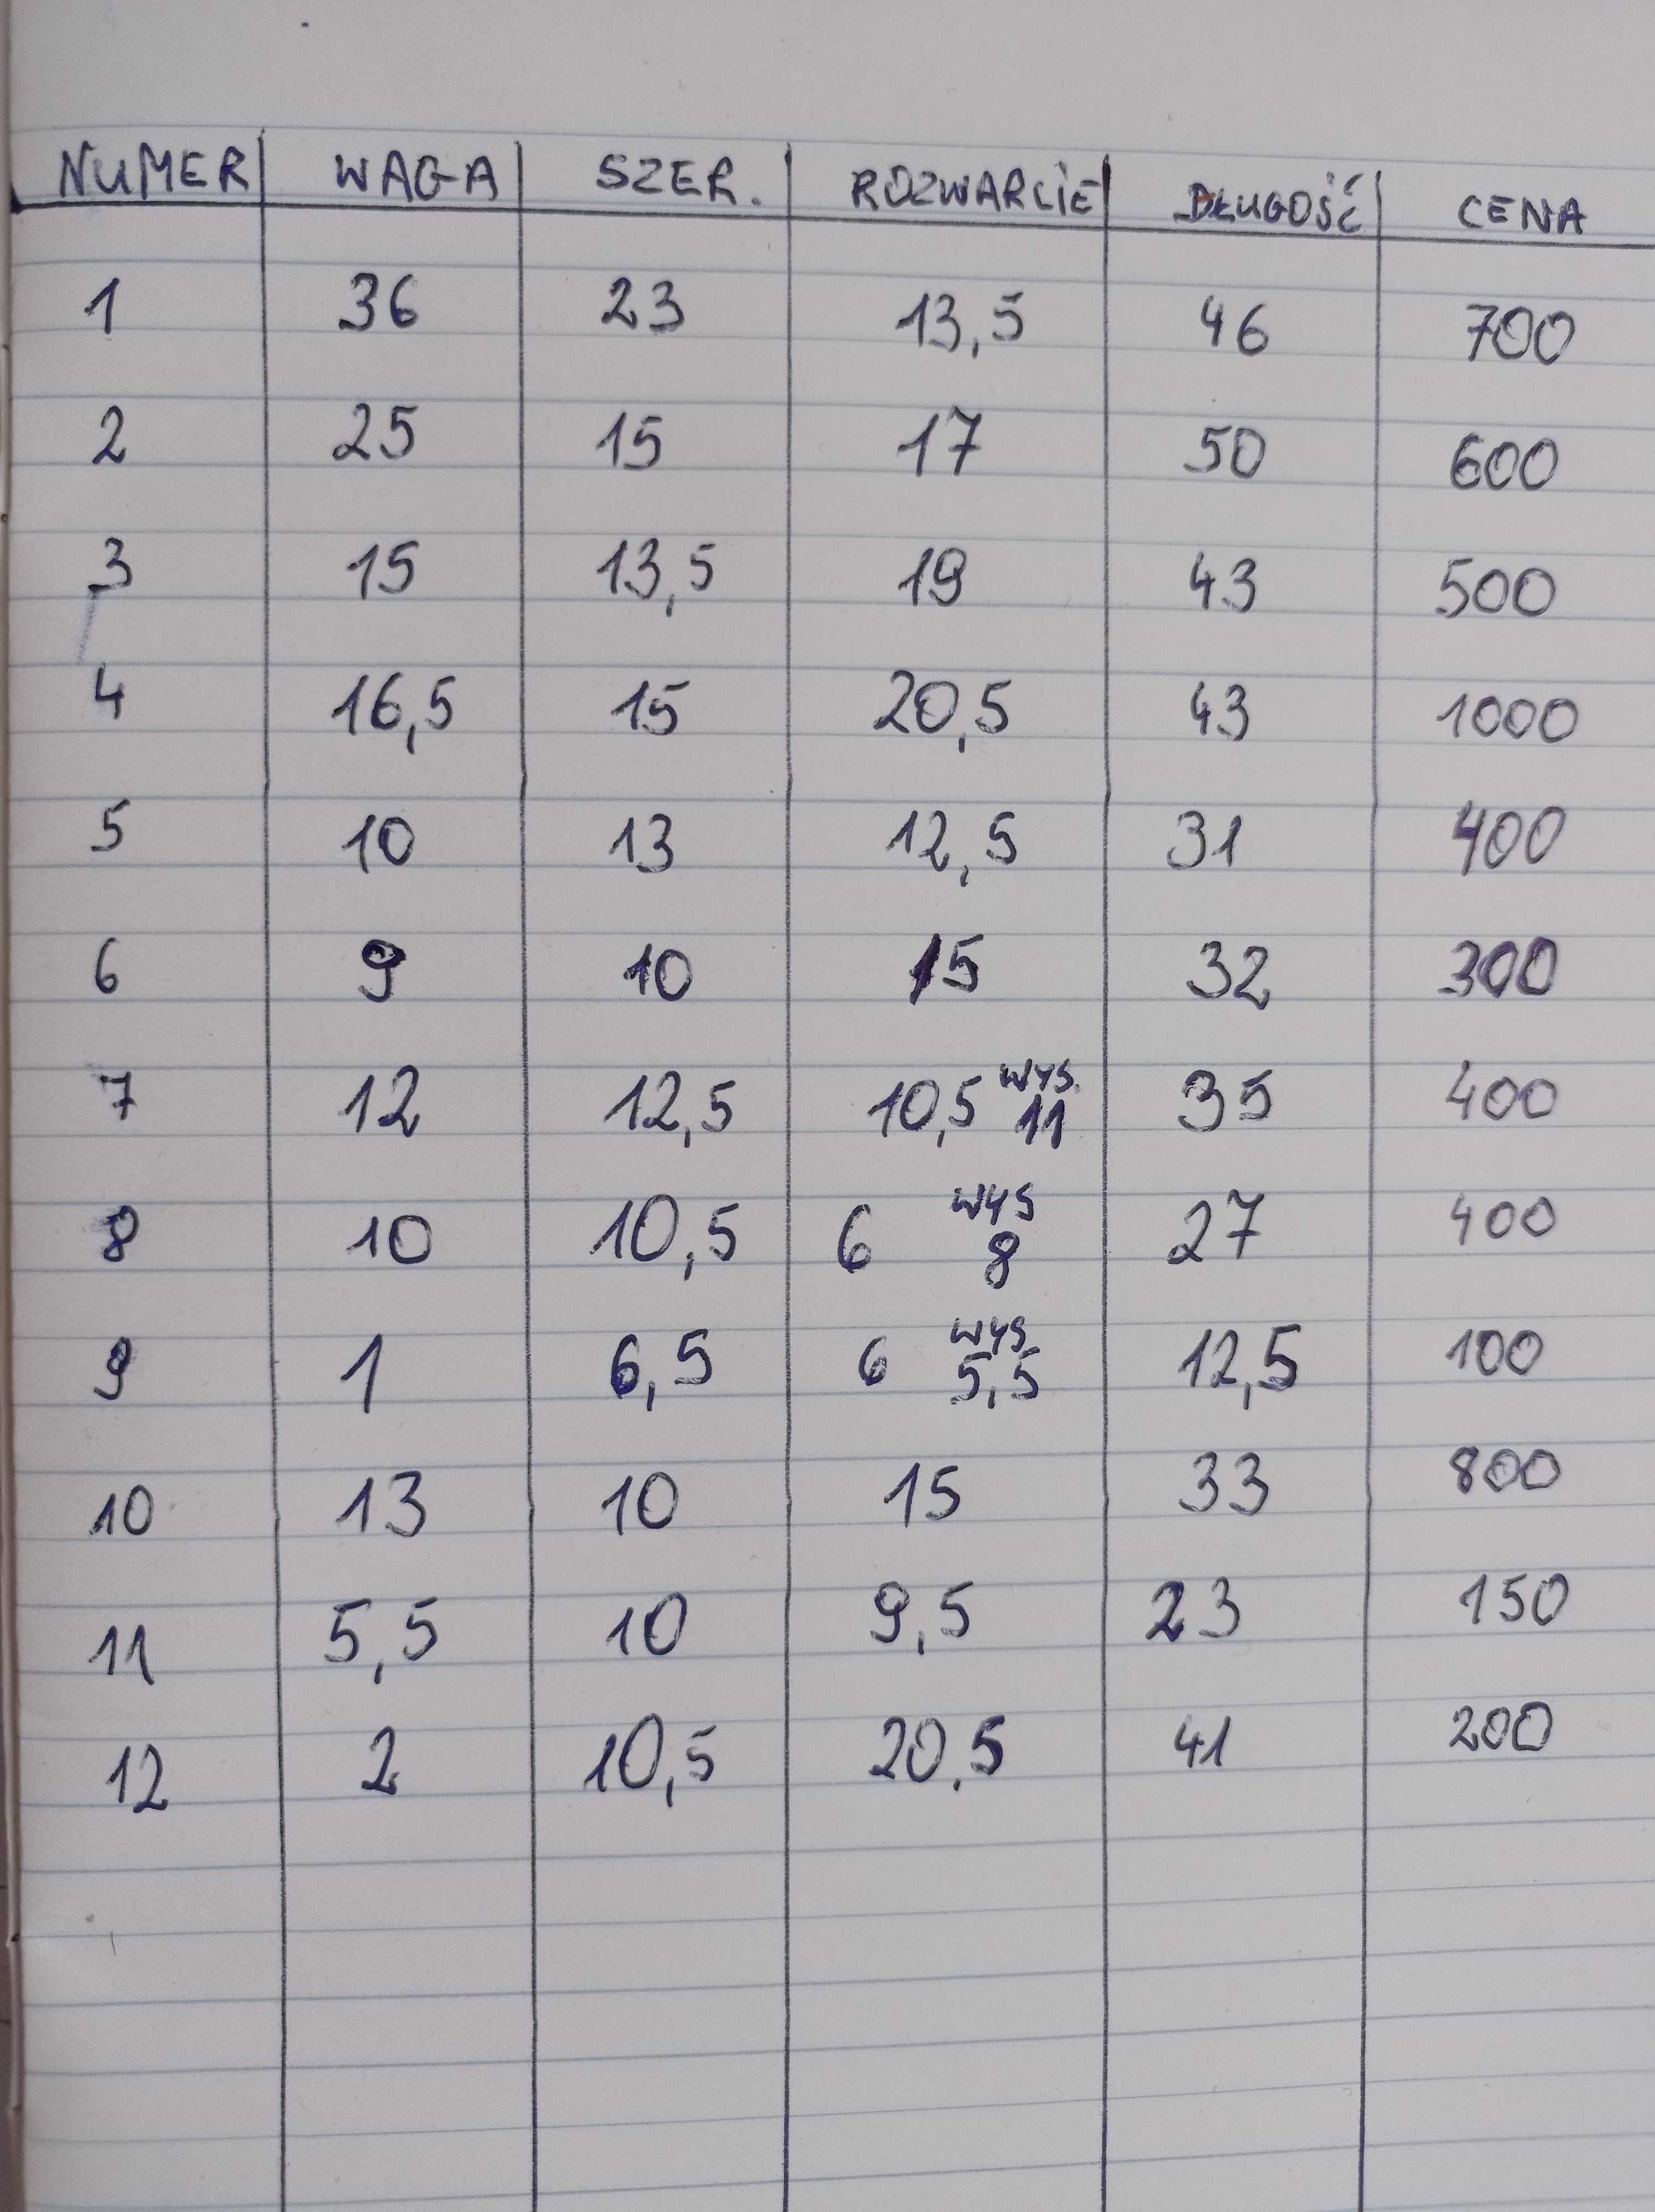 NUMER WAGA SZER. ROZWARCIE DŁUGOŚĆ CENA
1 36 23 13,5 46 700
2 25 15 17 50 600
3 15 13,5 19 43 500
4 16,5 15 20,5 43 1000
5 10 13 12,5 31 400
6 9 10 15 32 300
7 12 12,5 10,5 WYS. 11 35 400
8 10 10,5 6 WYS 8 27 400
9 1 6,5 6 WYS 5,5 12,5 100
10 13 10 15 33 800
11 5,5 10 9,5 23 150
12 2 10,5 20,5 41 200